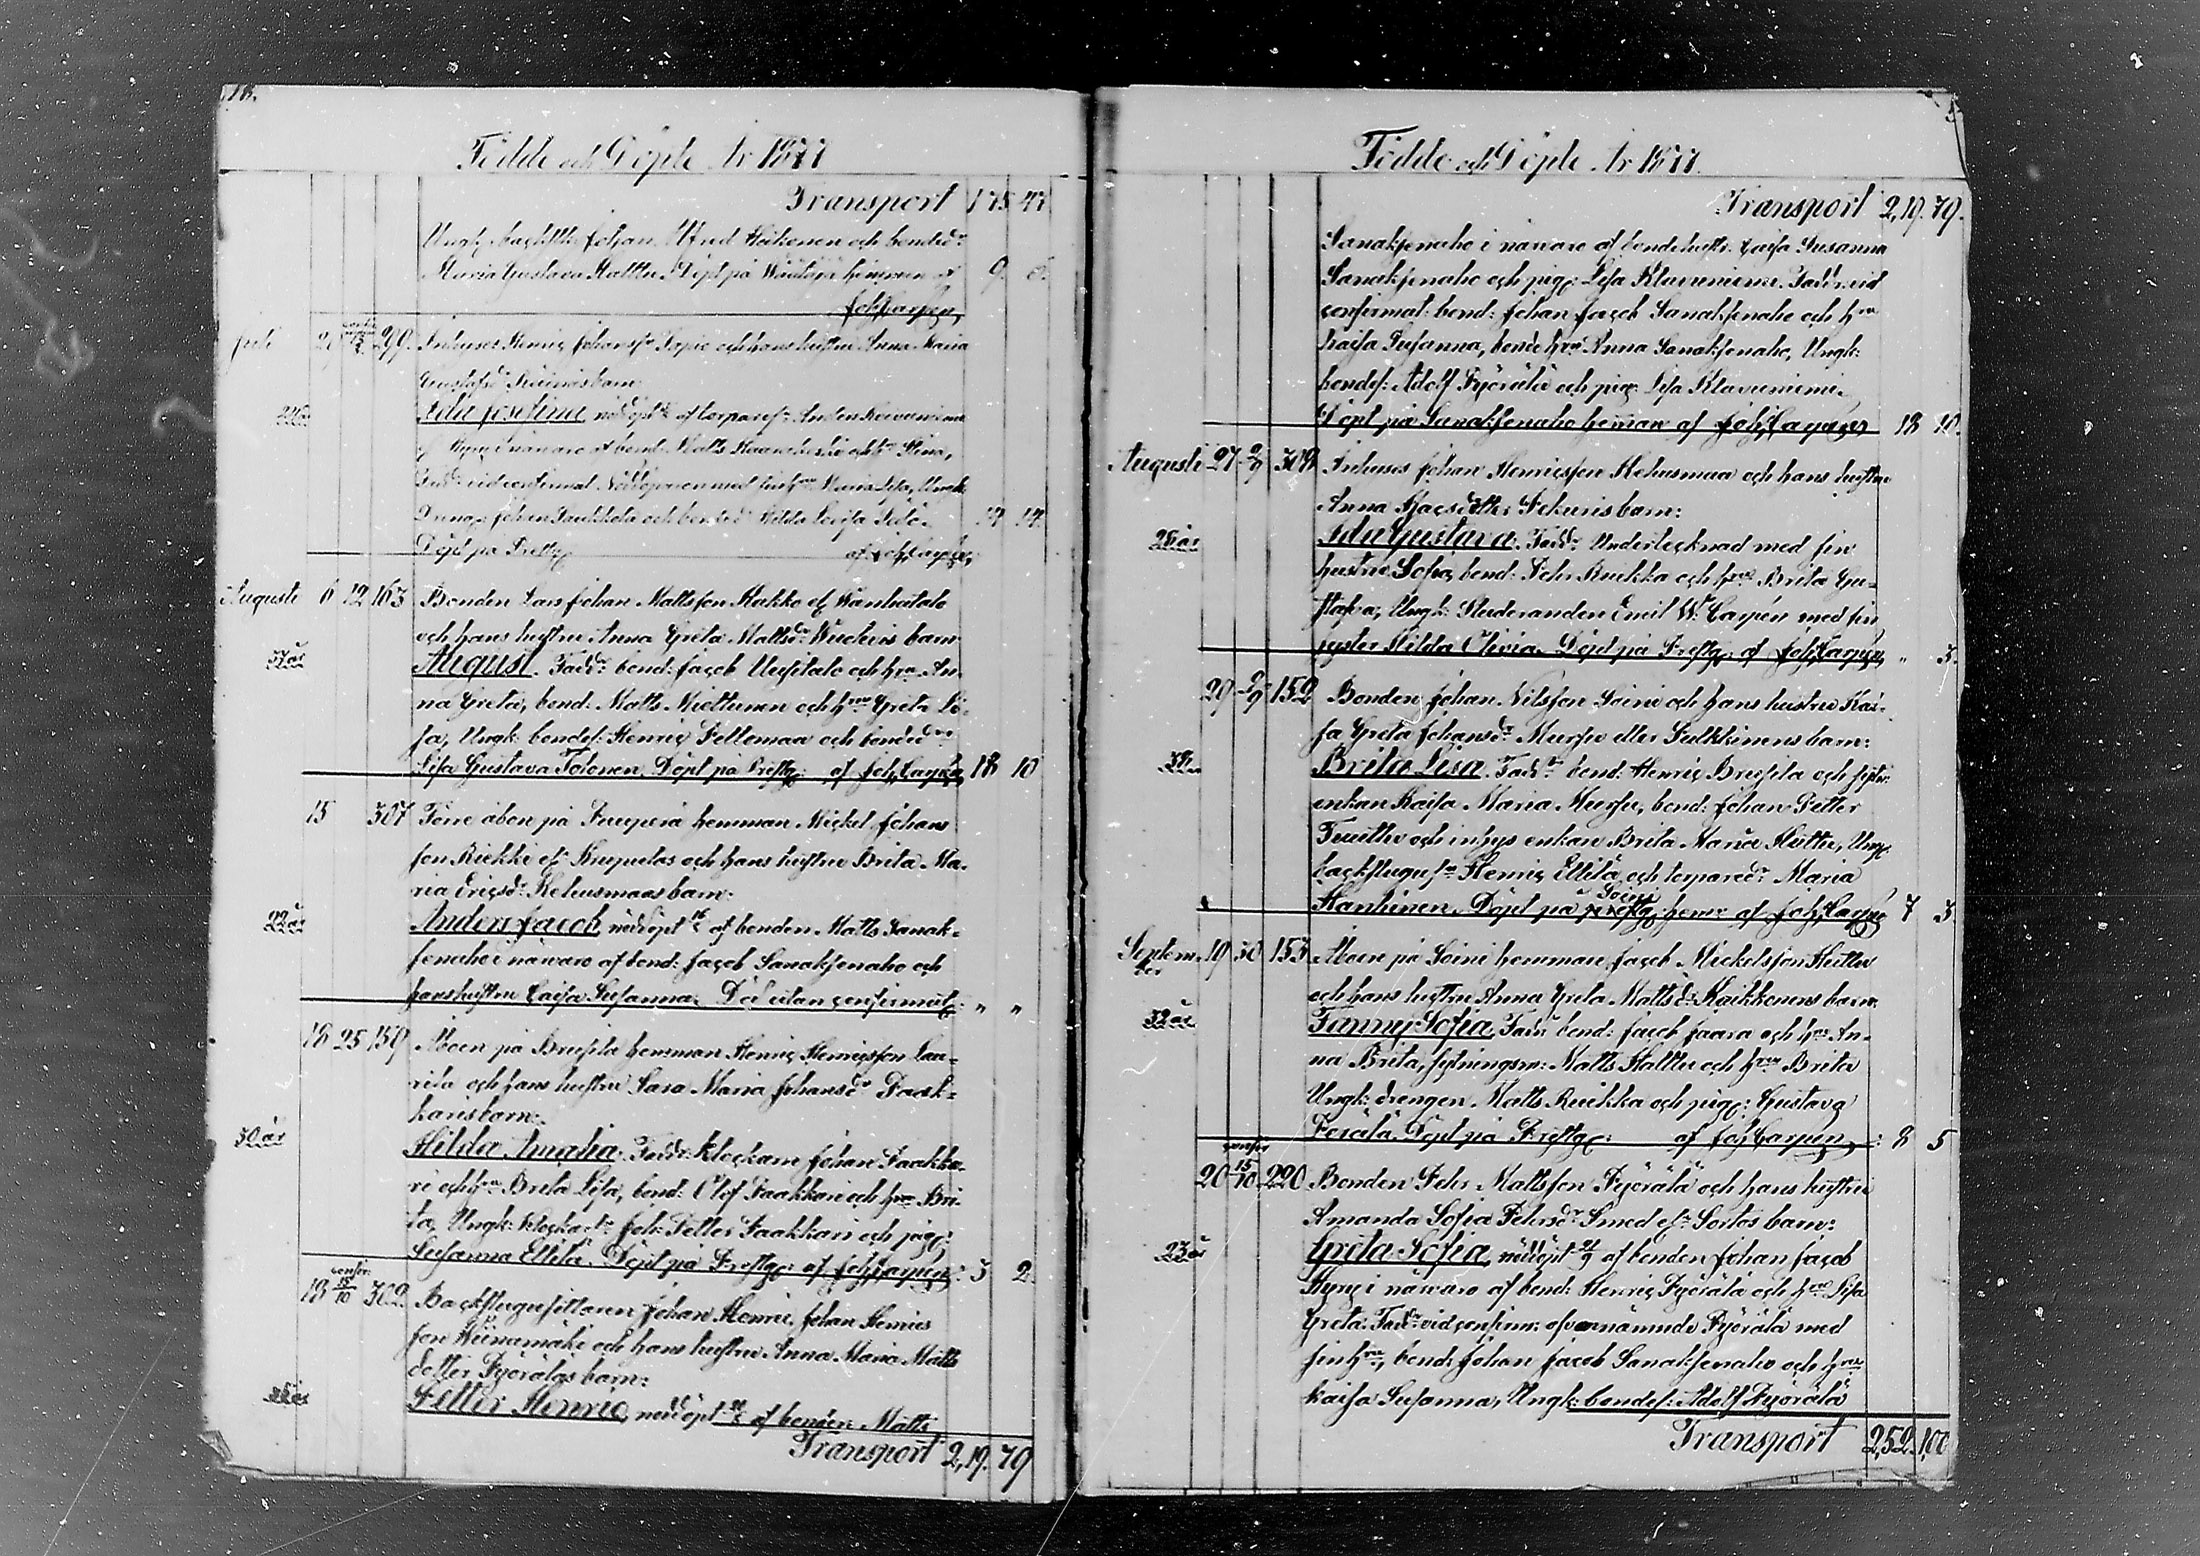 Födde och Döpte År 1877
Transport 175 47
Ungk. Johan och bonded:r
Maria Gustava Döpt på hemman af 9.
Joh. Carpén,
Juli 299. Inhyses Henric Johansson och hans hustru Anna Maria
barn:
Ida Josefina, nöddöpt af torpares:n
i närvaro af bend: Matts och Stina,
Fadd:r vid confirmat. med sin Maria Lisa, Ungk.
Dreng: Johan och bonded: Hilda
Döpt på Prestg: af Joh. Carpén,
Augusti 6 12 163 Bonden Lars Johan Mattsson Kakko el:r Wanhatalo
och hans hustru Anna Greta Mattsd:r barn:
37 år
August. Fadd:r bend: Jacob Uusitalo och h:ru An-
na Greta, bend: Matts Miettunen och h:ru Greta Li-
sa, Ungk. bondes: Henric Feltomaa och bonded:r
Lisa Gustava Tolonen. Döpt på Prestg: af Joh. Carpén, 18 10
15 307 Förre åbon på hemman Mickel Johans
son Riekki el:r och hans hustru Brita Ma-
ria Ericsd:r Kehusmaas barn:
22 år
Anders Jacob, nöddöpt af bonden Matts Sanak-
senaho i närvaro af bend: Jacob Sanaksenaho och
hans hustru Caisa Susanna. Död utan confirmat: " "
18 25 159 Åboen på Brusila hemman Henric Henricsson Lau-
rila och hans hustru Sara Maria Johansd:r Paak-
karis barn:
30 år
Hilda Amalia. Fadd:r klockaren Johan Paakka-
ri och h:ru Brita Lisa, bend: Olof Paakkari och h:ru Bri-
ta, Ungk: klockares:n Joh: Petter Paakkari och pig:
Susanna Ellilä. Döpt på Prestg: af Joh. Carpén: 3 2
confir:
18 15/10 302 Backstugusittaren Johan Henric Johan Henrics
son Wiinamäki och hans hustru Anna Maria Matts
dotter Pyöräläs barn:
Petter Henric, nöddöpt af bonden Matts
Transport 2,19. 79
Födde och Döpte År 1877.
Transport 2,19. 79.
Sanaksenaho i närvaro af bondehustr: Caisa Susanna
Sanaksenaho och pig: Lisa Klavuniemi. Fadd:r vid
confirmat: bend: Johan Jacob Sanaksenaho och h:ru
Kaisa Susanna, bonde h:ru Anna Sanaksenaho, Ungk:
bondes: Adolf Pyörälä och pig: Lisa Klavuniemi.
Döpt på Sanaksenaho hemman af Joh. Carpén 18 10.
Augusti 27 2/9 304 Inhyses Johan Henricsson Kehusmaa och hans hustru
Anna Isacsdotter Pekuris barn:
28 år
Ida Gustava. Fadd:r Undertecknad med sin
hustru Sofia, bend: Pehr Ruikka och h:ru Brita Gu-
stafva, Ungk: Studeranden Emil W. Carpén med sin
syster Hilda Olivia. Döpt på Prestg: af Joh. Carpén, " 3.
29 2/9 152 Bonden Johan Nilsson Soini och hans hustru Kai-
sa Greta Johansd:r Mursu eller Pulkkinens barn:
Brita Lisa. Fadd:r bend: Henric Brusila och
enkan Kaisa Maria Mursu, bend: Johan Petter
och inhys enkan Brita Maria Huttu, Ung:
backstugus:n Henric Ellilä och torpared:r Maria
Karhinen. Döpt på Soini hem:n af Joh. Carpén 7 3.
Septem-
ber 19 30 153 Åboen på Soini hemman Jacob Mickelsson Huttu
och hans hustru Anna Greta Mattsd:r Kaikkonens barn:
32 år
Fanny Sofia. Fadd:r bend: Jacob Jaara och h:ru An-
na Brita, sytningsm: Matts Halttu och h:ru Brita
Ungk: drengen Matts Ruikka och pig: Gustava
Perälä. Döpt på Prestg: af Joh. Carpén,: 8 5
confir
20 15/10 220 Bonden Pehr Mattsson Pyörälä och hans hustru
Amanda Sofia Pehrsd:r Smed el:r Sortos barn:
23 år
Greta Sofia, nöddöpt 21/9 af bonden Johan Jacob
i närvaro af bend: Henric Pyörälä och h:ru Lisa
Greta. Fadd:r vid confirm: ofvannämnde Pyörälä med
sin h:ru, bend: Johan Jacob Sanaksenaho och h:ru
Kaisa Susanna, Ungk: bondes: Adolf Pyörälä
Transport 2,52. 1,00